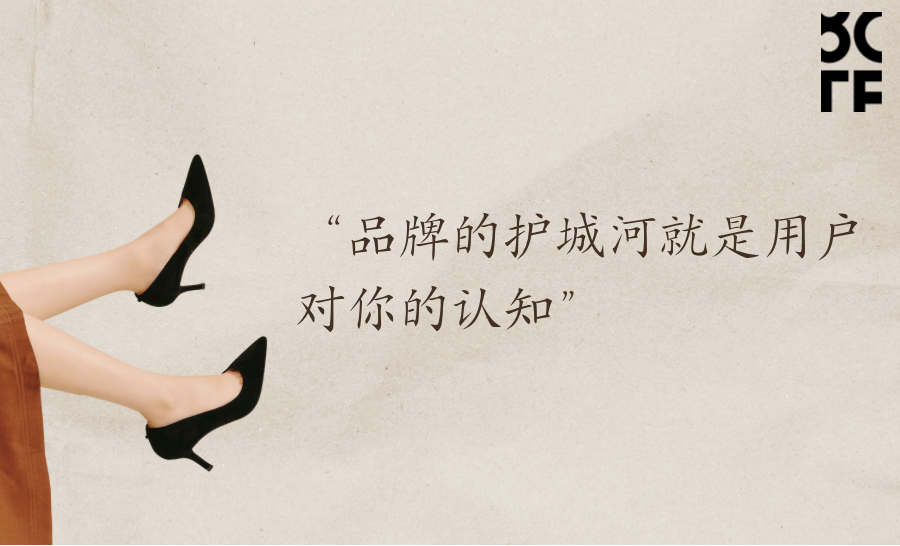 “品牌的护城河就是用户
对你的认知”